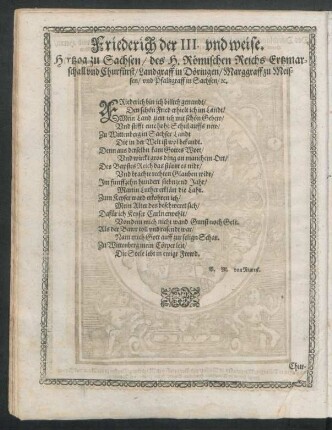 Friederich der III. vnd weise.
Hertzog zu Sachsen / des H. Römischen Reichs Ertzmar-
schall vnd Churfürst / Landgraff in Döringen / Marggraff zu Meis-
sen / vnd Pfaltzgraff in Sachsen / ꝛc.
FRiederich bin ich billich genandt /
Den schön Fried erhielt ich im Landt /
Mein Land zum
Vnd stifft eine hohe Schul auffs new /
Zu Wittenberg in Sachser Landt
Die in der Welt ist wol bekandt.
Denn aus derselben kam Gottes Wort /
Vnd wirckt gros ding an manchem Ort /
Des Bapstes Reich das stürtzt es nidr /
Vnd bracht rechten Glauben widr /
Im funffzehn hundert siebntzend Jahr /
Martin Luther erklärt die Lahr.
Zum Keyser ward erkohren ich /
Mein Alter des beschweret sich /
Dafür ich Keyser Carln erwehlt /
Von dem mich nicht wand Gunst noch Gelt.
Als der Bawr toll vnd rasende war,
Nam mich Gott auff zur selgen Schar.
Zu Wittenberg mein Cörper leit /
Die Seele lebt in ewge Frewd.
Chur-